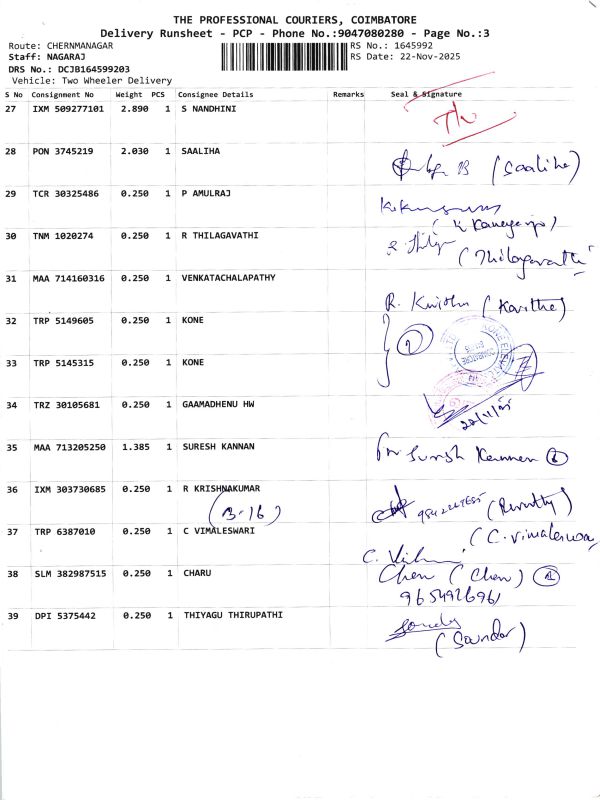 THE PROFESSIONAL COURIERS, COIMBATORE
Delivery Runsheet - PCP - Phone No.:9047080280 - Page No.:3
Route: CHERNMANAGAR RS No.: 1645992
Staff: NAGARAJ RS Date: 22-Nov-2025
DRS No.: DCJB164599203
Vehicle: Two Wheeler Delivery
S No Consignment No Weight PCS Consignee Details Remarks Seal & Signature
27 IXM 509277101 2.890 1 S NANDHINI
28 PON 3745219 2.030 1 SAALIHA
(Saaliha)
29 TCR 30325486 0.250 1 P AMULRAJ
30 TNM 1020274 0.250 1 R THILAGAVATHI
(Thilagavathi
31 MAA 714160316 0.250 1 VENKATACHALAPATHY
R. Kavitha (Kavitha)
32 TRP 5149605 0.250 1 KONE
2
33 TRP 5145315 0.250 1 KONE
34 TRZ 30105681 0.250 1 GAAMADHENU HW
22/11/25
35 MAA 713205250 1.385 1 SURESH KANNAN
Suresh Kannan
36 IXM 303730685 0.250 1 R KRISHNAKUMAR
(B-16)
37 TRP 6387010 0.250 1 C VIMALESWARI
(C. Vimaleswa
38 SLM 382987515 0.250 1 CHARU
1
39 DPI 5375442 0.250 1 THIYAGU THIRUPATHI
(Soundar)